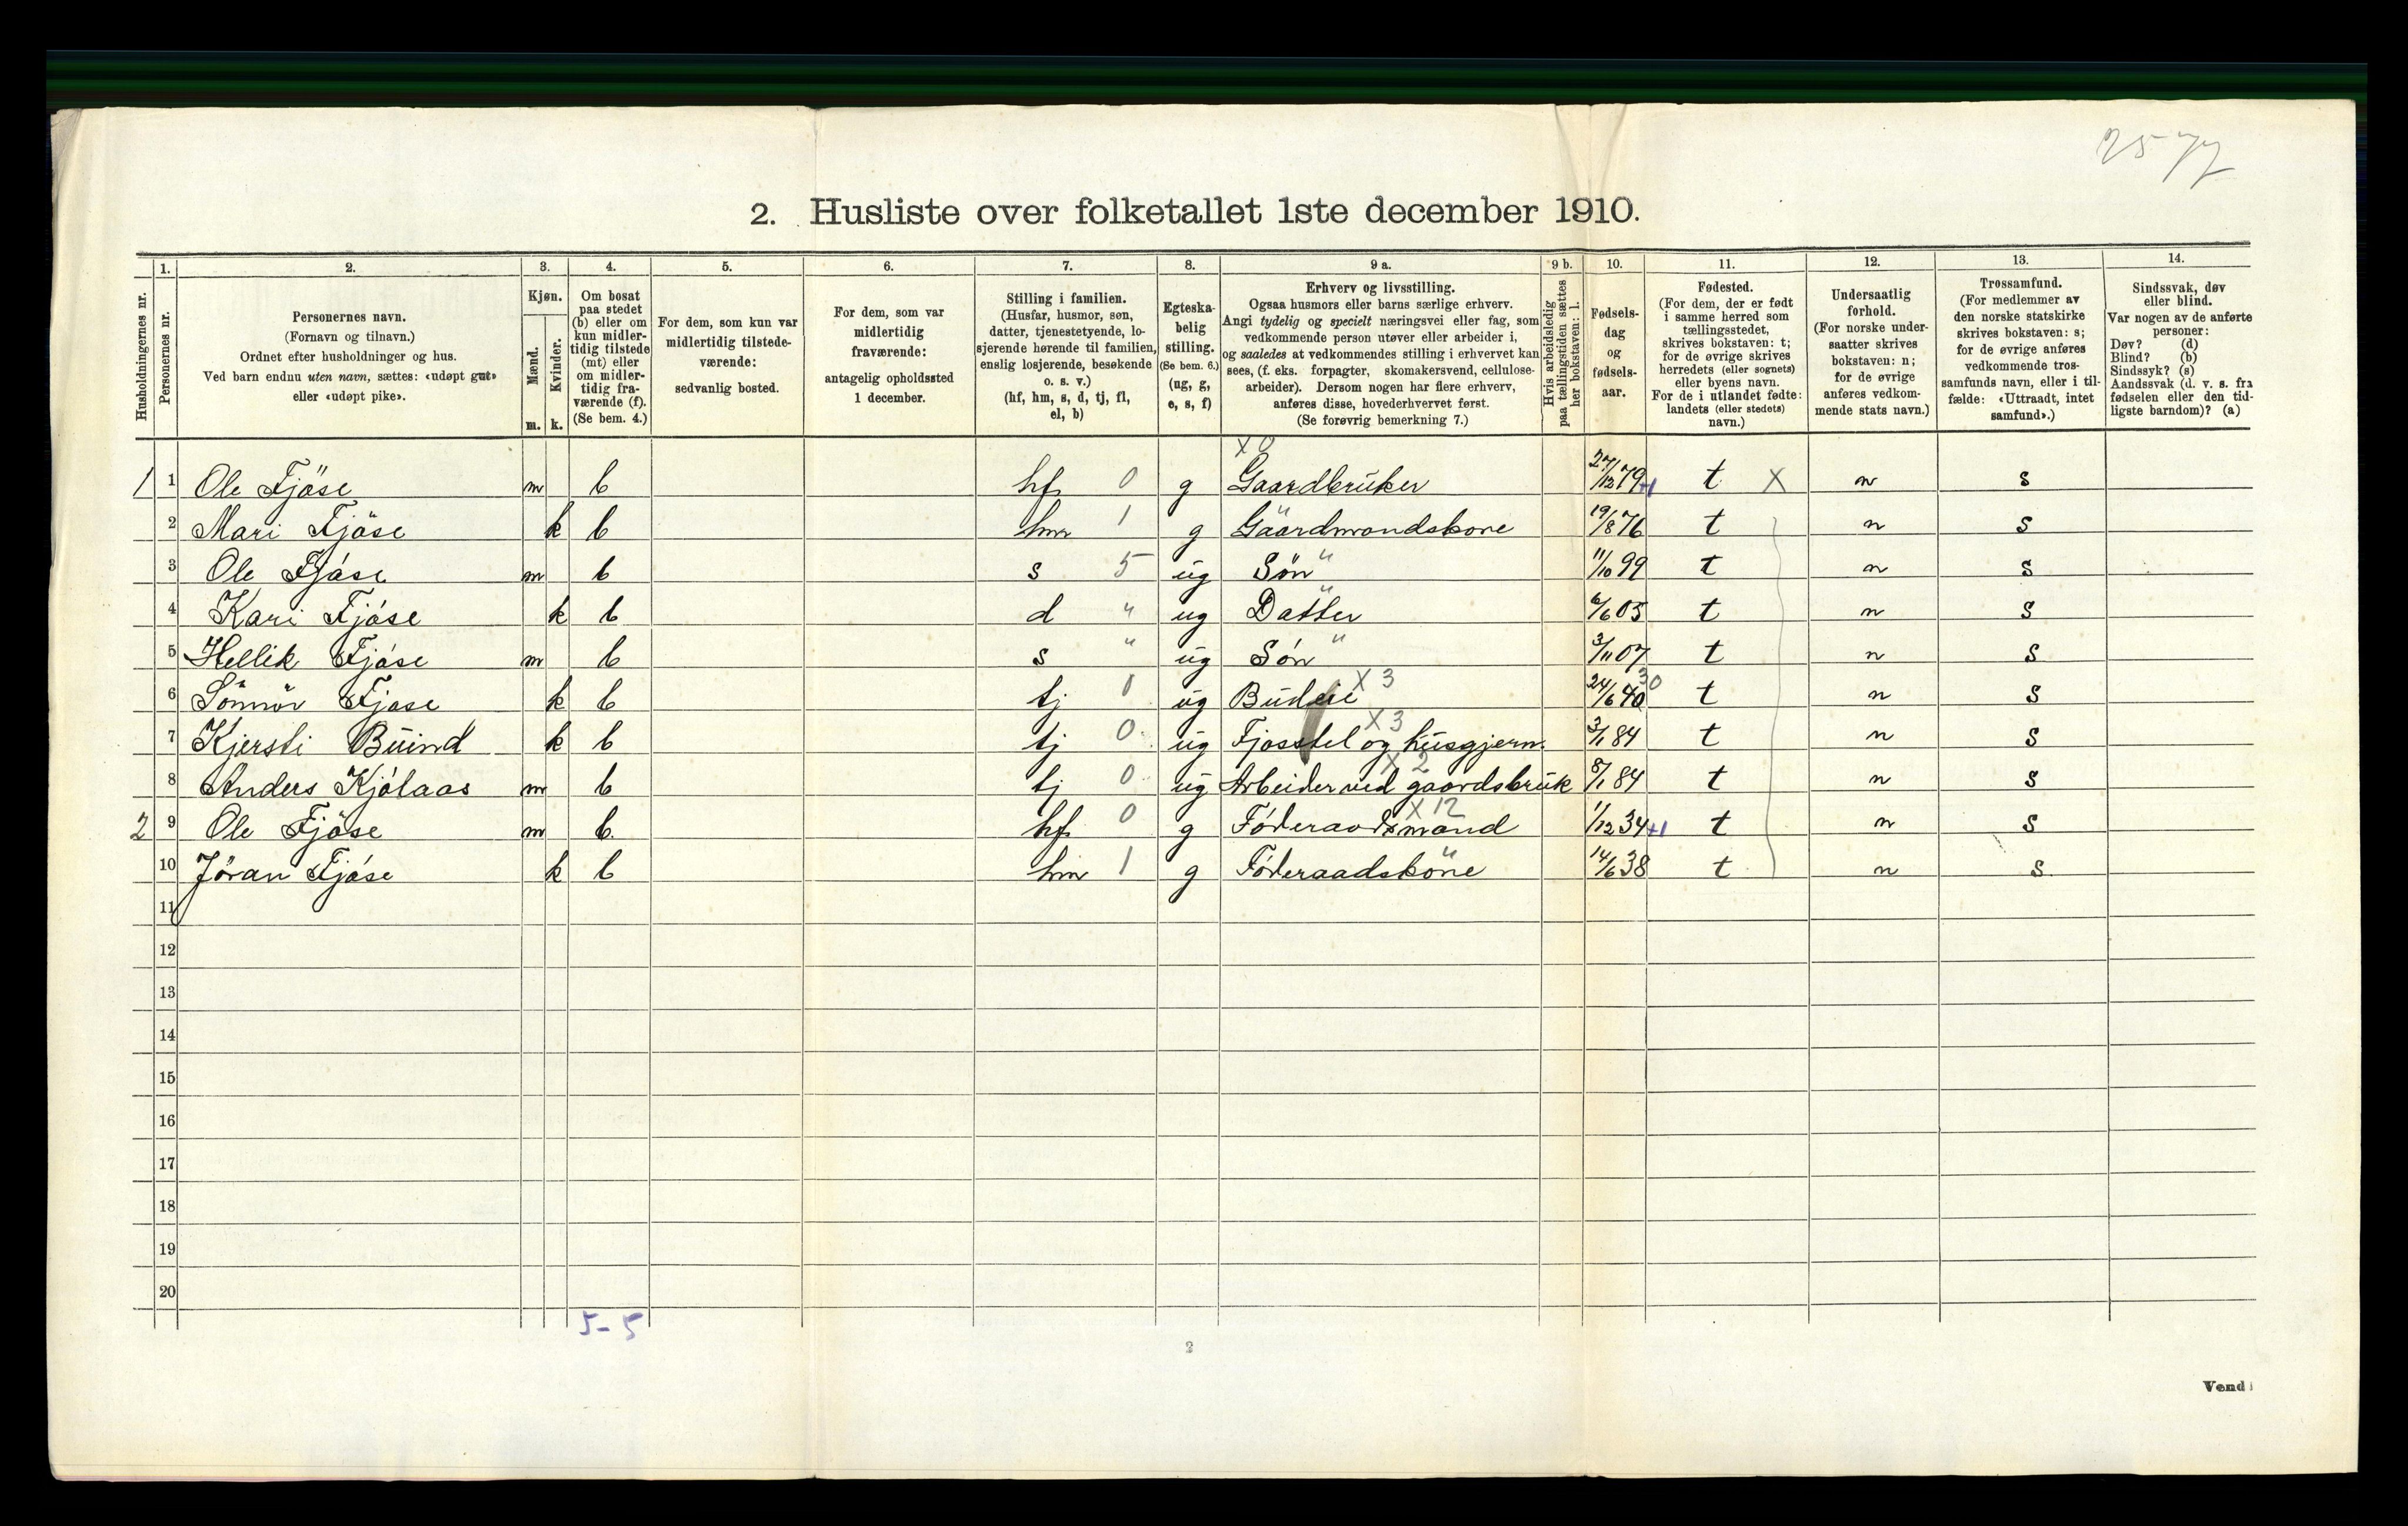 2577
2. Husliste over folketallet 1ste december 1910.
Husholdningernes nr.
1. Personernes nr.
2. Personernes navn.
(Fornavn og tilnavn.)
Ordnet efter husholdninger og hus.
Ved barn endnu uten navn, sættes: «udøpt gut»
eller «udøpt pike».
3. Kjøn.
Mænd. Kvinder.
m. k.
4. Om bosat
paa stedet
(b) eller om
kun midler-
tidig tilstede
(mt) eller
om midler-
tidig fra-
værende (f).
(Se bem. 4.)
5. For dem, som kun var
midlertidig tilstede-
værende:
sedvanlig bosted.
6. For dem, som var
midlertidig
fraværende:
antagelig opholdssted
1 december.
7. Stilling i familien.
(Husfar, husmor, søn,
datter, tjenestetyende, lo-
sjerende hørende til familien,
enslig losjerende, besøkende
o. s. v.)
(hf, hm, s, d, tj, fl,
el, b)
8. Egteska-
belig
stilling.
(Se bem. 6.)
(ug, g,
e, s, f)
9 a. Erhverv og livsstilling.
Ogsaa husmors eller barns særlige erhverv.
Angi tydelig og specielt næringsvei eller fag, som
vedkommende person utøver eller arbeider i,
og saaledes at vedkommendes stilling i erhvervet kan
sees, (f. eks. forpagter, skomakersvend, cellulose-
arbeider). Dersom nogen har flere erhverv,
anføres disse, hovederhvervet først.
(Se forøvrig bemerkning 7.)
9 b. Hvis arbeidsledig
paa tællingstiden sættes
her bokstaven: l.
10. Fødsels-
dag
og
fødsels-
aar.
11. Fødested.
(For dem, der er født
i samme herred som
tællingsstedet,
skrives bokstaven: t;
for de øvrige skrives
herredets (eller sognets)
eller byens navn.
For de i utlandet fødte:
landets (eller stedets)
navn.)
12. Undersaatlig
forhold.
(For norske under-
saatter skrives
bokstaven: n;
for de øvrige
anføres vedkom-
mende stats navn.)
13. Trossamfund.
(For medlemmer av
den norske statskirke
skrives bokstaven: s;
for de øvrige anføres
vedkommende tros-
samfunds navn, eller i til-
fælde: «Uttraadt, intet
samfund».)
14. Sindssvak, døv
eller blind.
Var nogen av de anførte
personer:
Døv? (d)
Blind? (b)
Sindssyk? (s)
Aandssvak (d. v. s. fra
fødselen eller den tid-
ligste barndom)? (a)
X 0
1 1 Ole Fjöse m b hf 0 g Gaardbruker 27/12 79 +1 t X n s
2 Mari Fjöse k b hm 1 g Gaardmandskone " 19/8 76 t n s
3 Ole Fjóse m b s 5 ug Sön " 11/10 99 t n s
4 Kari Fjóse k b d " ug Datter " 6/6 05 t n s
5 Hellik Fjóse m b s " ug Són " 3/11 07 t n s
6 Sönnöv Fjose k b tj 0 ug Budeie X 3 24/6 40 30 t n s
7 Kjersti Buind k b tj 0 ug Fjosstel og husgjern. X 3 3/1 84 t n s
8 Anders Kjólaas m b tj 0 ug Arbeider ved gaardsbruk X 2 8/1 84 t n s
2 9 Ole Fjöse m b hf 0 g Föderaadsmand X 12 1/12 34 +1 t n s
10 Jöran Fjóse k b hm 1 g Fóderaadskone " 14/6 38 t n s
11
12
13
14
15
16
17
18
19
20
5-5
2
Vend